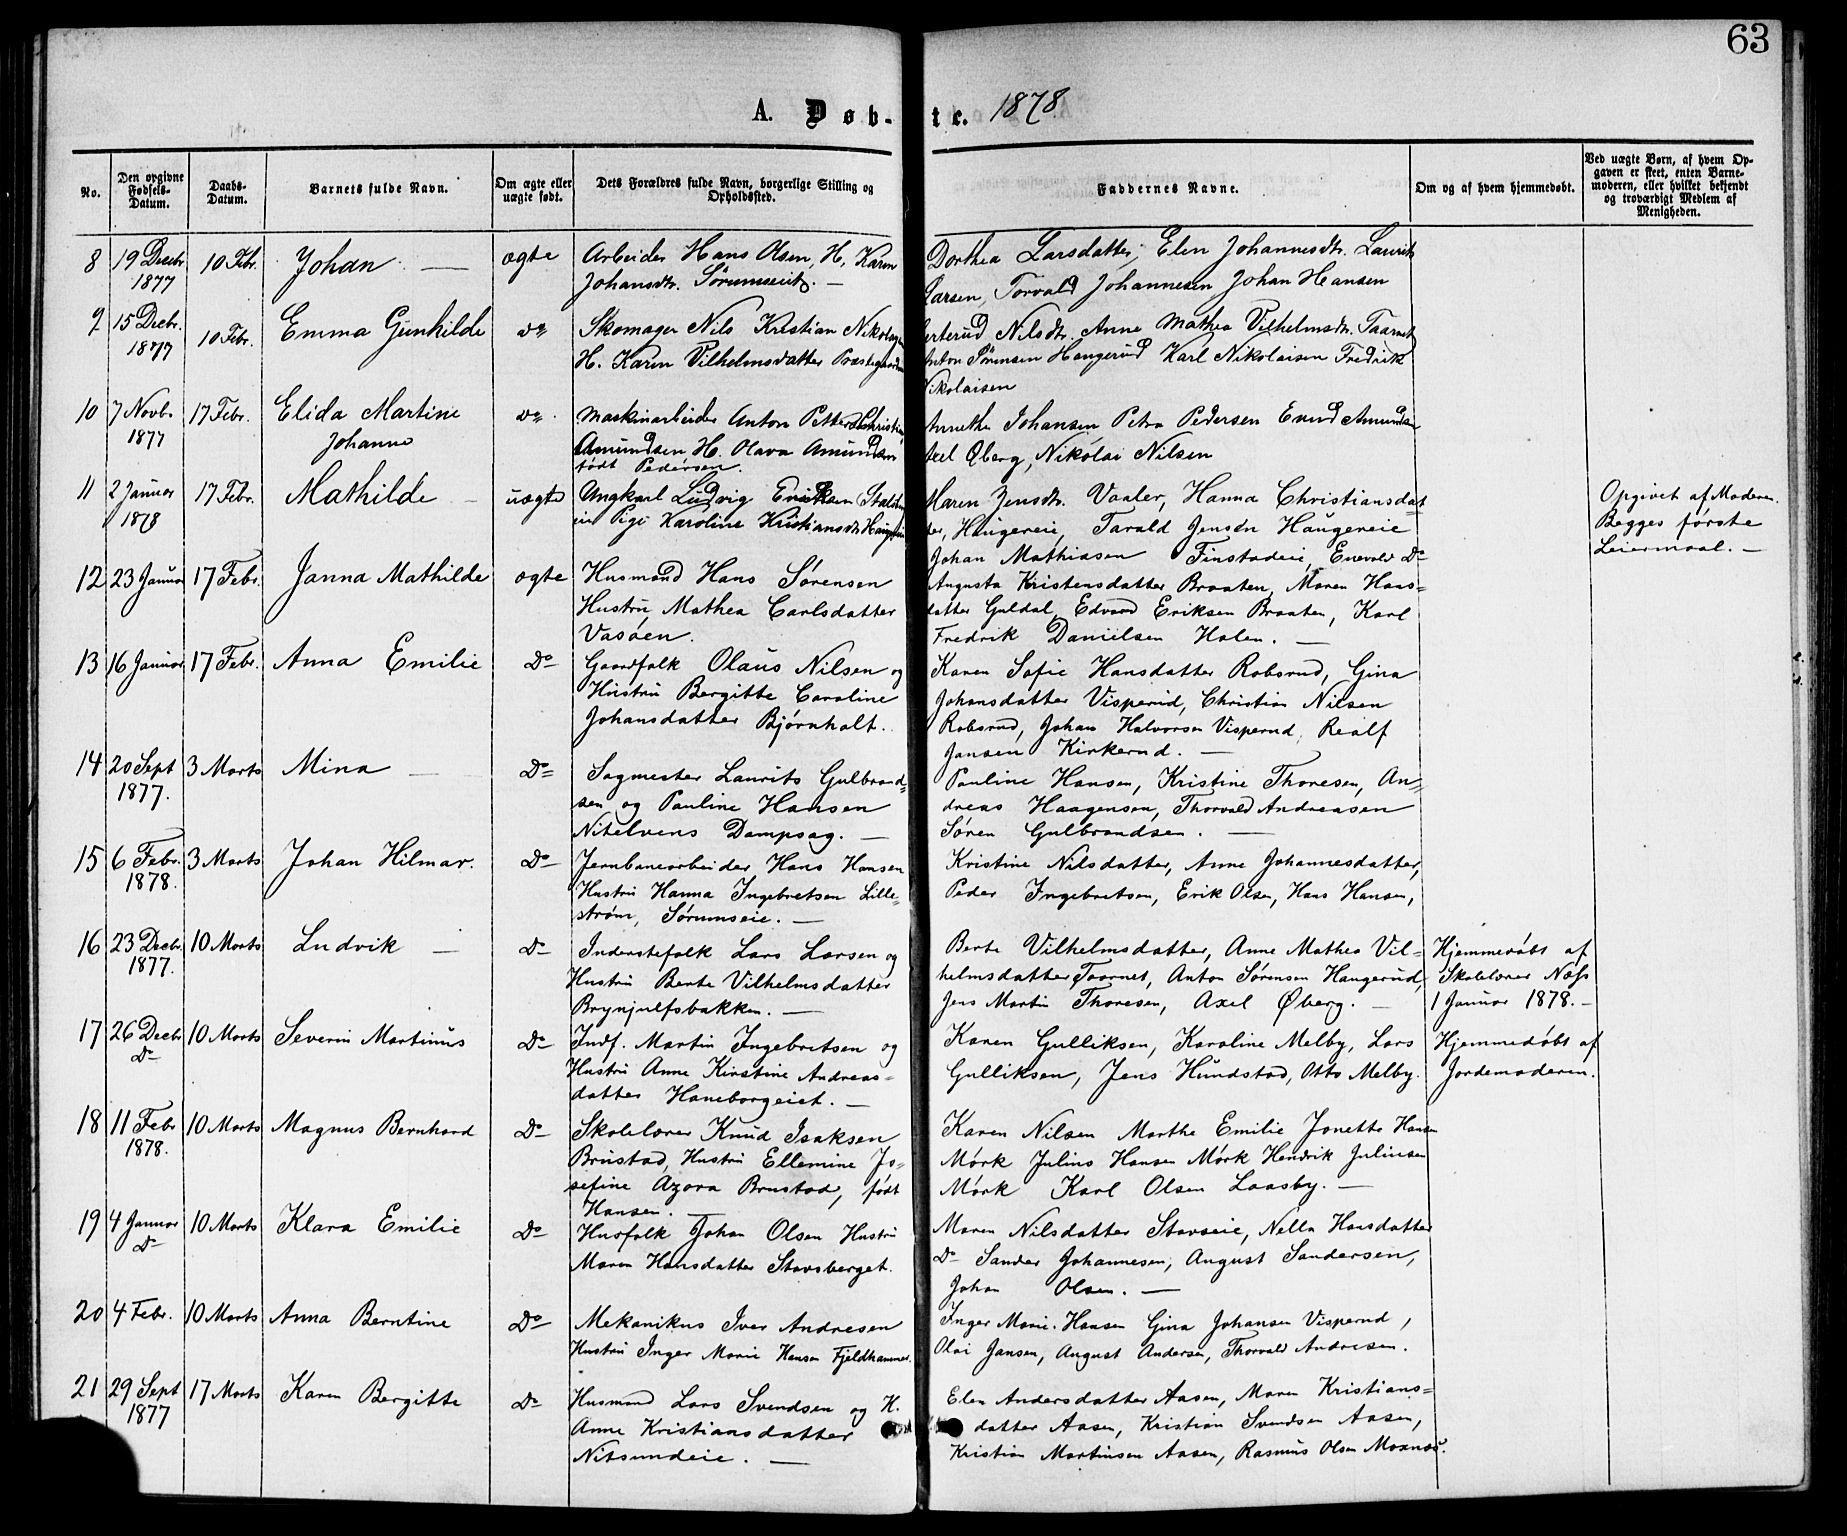 63
A. Døb- te. 1878.
No.
Den opgivne Fødsels-Datum.
Daabs-Datum.
Barnets fulde Navn.
Om ægte eller uægte født.
Dets Forældres fulde Navn, borgerlige Stilling og Opholdssted.
Faddernes Navne.
Om og af hvem hjemmedøbt.
Ved uægte Børn, af hvem Opgaven er skeet, enten Barnemoderen, eller hvilket bekjendt og troværdigt Medlem af Menigheden.
8 19 Decbr 1877 10 Febr. Johan — ægte
Arbeider Hans Olsen, H. Karen
Johansdtr. Sørumseiet. —
Dorthea Larsdatter, Elen Johannesdtr. Laurits
Larsen, Torvald Johannesen Johan Hansen
9 15 Decbr. 1877 10 Febr. Emma Gunhilde do
Skomager Nils Kristian Nikolaysen
H. Karen Vilhelmsdatter Præstegaarden
Nilsdtr. Anne Mathea Vilhelmsdtr. Taarnet
Anton Sørensen Haugerud Karl Nikolaisen Fredrik
Nikolaisen
10 7 Novbr 1877 17 Febr. Elida Martine Johanne do
Maskinarbeider Anton Petter Christian
Amundsen H. Olava Amundsen
født Pedersen.
Annethe Johansen Petra Pedersen Amundsen
Axel Øberg, Nikolai Nilsen
11 2 Januar 1878 17 Febr. Mathilde — uægte
Ungkarl Ludvig Eriksen
Pige Karoline Kristiansdtr
Maren Jensdtr. Vaaler, Hanna Christiansdat
ter, Haugereie, Tarald Jensen Haugereie
Johan Mathiasen Finstadeie, Enevald Do
Opgivet af Moderen.
Begges første
Leiermaal. —
12 23 Januar 17 Febr. Janna Mathilde ægte
Husmand Hans Sørensen
Hustru, Mathea Carlsdatter
Vasøen.
Augusta Kristensdatter Braaten, Maren Hans=
datter Guldal, Edvard Eriksen Braaten, Karl
Fredrik Danielsen Holen. —
13 16 Januar 17 Febr. Anna Emilie Do
Gaardfolk Olaus Nilsen og
Hustru Bergitte Caroline
Johansdatter Bjørnholt.
Karen Sofie Hansdatter Robsrud, Gina
Johansdatter Visperud, Christian Nilsen
Robsrud, Johan Halvorsen Visperud, Realf
Jansen Kirkerud. —
14 20 Sept 1877. 3 Marts Mina — Do
Sagmester Laurits Gulbrand=
sen og Pauline Hansen
Nitelvens Dampsag. —
Pauline Hansen, Kristine Thoresen, An=
dreas Haagensen, Thorvald Andreasen
Søren Gulbrandsen. —
15 6 Febr. 1878. 3 Marts Johan Hilmar. Do
Jernbanearbeider Hans Hansen
Hustru Hanna Ingebretsen Lille=
strøm, Sørumseie. —
Kristine Nilsdatter, Anne Johannesdatter,
Peder Ingebretsen, Erik Olsen, Hans Hansen,
16 23 Decbr. 1877. 10 Marts Ludvik — Do
Inderstefolk Lars Larsen og
Hustru Berte Vilhelmsdatter
Brynjulfsbakken. —
Berte Vilhelmsdatter, Anne Mathea Vil=
helmsdatter Taarnet, Anton Sørensen Haugerud,
Jens Martin Thoresen, Axel Øberg. —
Hjemmedøbt af
Skolelærer Næss
1 Januar 1878. —
17 26 Decbr Do 10 Marts Severin Martinus Do
Indf. Martin Ingebretsen og
Hustru Anne Kirstine Andreas=
datter Haneborgeiet. —
Karen Gulliksen, Karoline Melby, Lars
Gulliksen, Jens Hundstad, Otto Melby.
Hjemmedøbt af
Jordemoderen.
18 11 Febr 1878. 10 Marts Magnus Bernhard Do
Skolelærer Knud Isaksen
Brustad, Hustru Ellemine Jo=
sefine Azora Brustad, født
Hansen. —
Karen Nilsen Marthe Emilie Jonette Hansen
Mørk Julius Hansen Mørk Hendrik Juliusen
Mørk Karl Olsen Laasby. —
19 4 Januar Do 10 Marts Klara Emilie Do
Husfolk Johan Olsen Hustru
Maren Hansdatter Stavsberget.
Maren Nilsdatter Stavseie, Nella Hansdatter
Do Sander Johannesen, August Sandersen,
Johan Olsen. —
20 4 Febr. 10 Marts Anna Berntine Do
Mekanikus Iver Andresen
Hustru Inger Marie Hansen Fjeldhammer.
Inger Marie Hansen Gina Johansen Visperud,
Olai Jansen, August Andersen, Thorvald Andresen.
21 29 Sept 1877 17 Marts Karen Bergitte Do
Husmand Lars Svendsen og H.
Anne Kristiansdatter
Nitsundeie. —
Elen Andersdatter Aasen, Maren Kristians=
datter Aasen, Kristian Svendsen Aasen,
Kristian Martinsen Aasen, Rasmus Olsen Moxnæs.